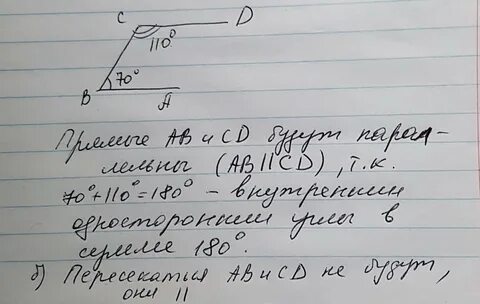 C D
110°
70°
B A
Прямые АВ и CD будут парал-
лельны (АВ||CD), т.к.
70°+110°=180° - внутренние
односторонние углы в
сумме 180°.
б) Пересекаться АВ и CD не будут,
они ||